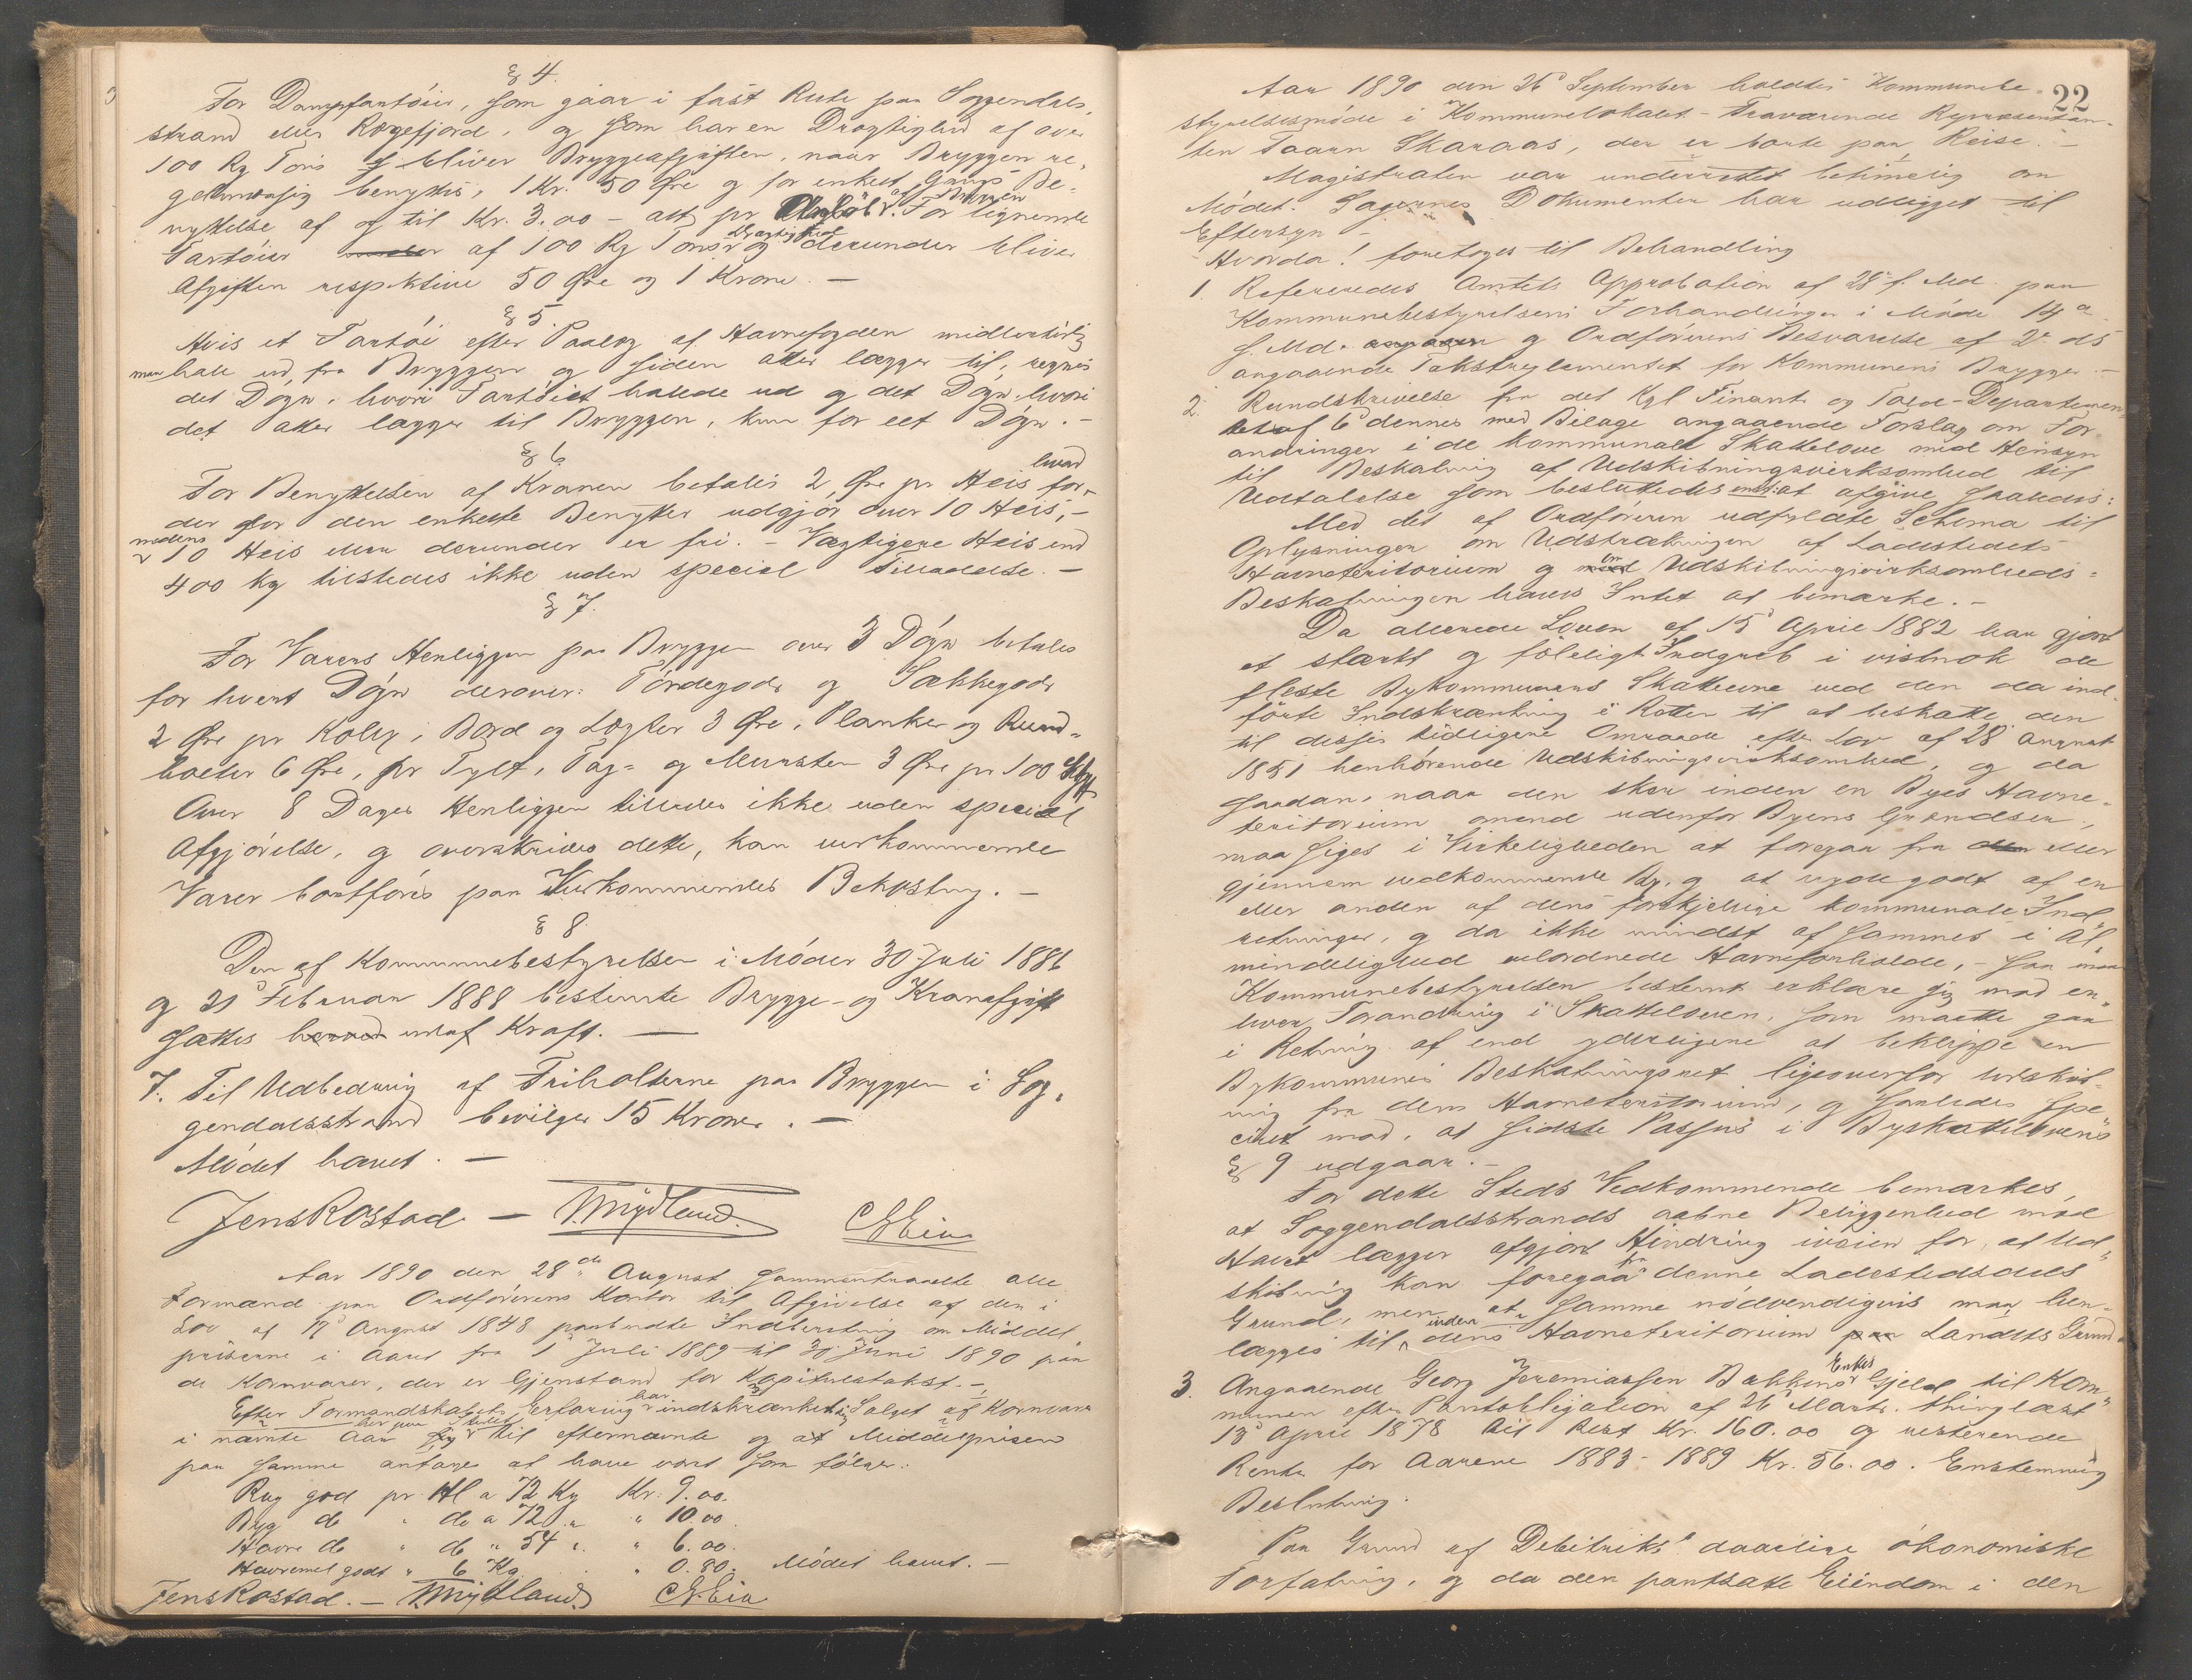 § 4.
For Dampfartöier, som gaar i fast Rute paa Soggendals-
strand eller Rægefjord, og som har en Drægtighed af over
100 Rg Tons bliver Bryggeafgiften, naar Bryggen re-
gelmæssig benyttes, 1 Kr. 50 Øre og for enkelt Gangs Be-
nyttelse af Bryggen op til Kr. 3.00 - alt pr Anløb. For lignende
Fartöier af 100 Rg Tons Drægtighed og derunder bliver
Afgiften respektive 50 Øre og 1 Krone. —
§ 5.
Hvis et Fartöi efter Paalæg af Havnefogden midlertidig
maa hale ud fra Bryggen og siden atter lægger til, regnes
det Døgn, hvori Fartöiet halede ud og det Døgn, hvori
det atter lægger til Bryggen, kun for eet Døgn. -
§ 6
For Benyttelsen af Kranen betales 2 Øre pr Heis for, hvad
der for den enkelte Benytter udgjør over 10 Heis, -
medens 10 Heis eller derunder er fri. - Vægtigere Heis end
400 kg tilstedes ikke uden special Tilladelse. -
§ 7.
For Varers Henliggen paa Bryggen over 3 Døgn betales
for hvert Døgn derover: Tøndegods og Sækkegods
2 Øre pr Kolly, Bord og Lægter 3 Øre, Planker og Rund-
holter 6 Øre, pr Tylt, Tag- og Mursten 3 Øre pr 100 Stkr
Over 8 Dages Henliggen tillades ikke uden special
Afgjørelse, og overskrides dette, kan vedkommende
Varer bortføres paa Vedkommendes Bekostning. -
§ 8.
Den af Kommunebestyrelsen i Møder 30 Juli 1886
og Februar 1888 bestemte Brygge- og Kranafgift
sættes herved ud af Kraft. —
7. Til Udbedring af Friholterne paa Bryggen i Sog-
gendalsstrand bevilges 15 Kroner. -
Mødet hævet. -
Jens Rostad - T. Mydland. C Eia
Aar 1890 den 28de August sammentraadte alle
Formænd paa Ordførerens Kontor til Afgivelse af den i
Lov af August 1848 paabudte Indberetning om Middel-
priserne i Aaret fra 1 Juli 1889 til 30 Juni 1890 paa
de Kornvarer, der er Gjenstand for Kapitelstakst. -
Efter Formandskabets Erfaring har indskrænket sig Salget af Kornvarer
i nævnte Aar her paa Stedet til efternævnte og at Middelprisen
paa samme antages at have været som følger:
Rug god pr Hl a 72 Kg Kr. 9.00.
Byg do " do a 72 " " 10.00
Havre do " do " 54 " " 6.00.
Havremel godt " 6 Kg " 0.80. Mødet hævet. -
Jens Rostad. - T. Mydland C Eia
22
Aar 1890 den 26 September holdtes Kommunebe-
styrelsesmøde i Kommunelokalet - Fraværende Repræsentan-
ten Taarn Skaraas, der er borte paa Reise. -
Magistraten var underrettet betimelig om
Mødet. Sagernes Dokumenter har udligget til
Eftersyn -
Hvorda! foretoges til Behandling
1. Refereredes Amtets Approbation af 28 f. Md. paa
Kommunebestyrelsens Forhandlinger i Møde 14
f. Md. og Ordførerens Besvarelse af 2 ds
angaaende Takstreglementet for Kommunens Brygger. -
2. Rundskrivelse fra det Kgl Finants og Told-Departemen-
tet af 6 dennes med Bilage angaaende Forslag om For-
andringer i de kommunale Skattelove med Hensyn
til Beskatning af Udskibningsvirksomhed til
Udtalelse som besluttedes at afgive saaledes:
Med det af Ordføreren udfyldte Schema til
Oplysninger om Udstrækningen af Ladestedets
Havneteritorium og om Udskibningsvirksomheds-
Beskatningen haves Intet at bemærke. -
Da allerede Loven af 15 April 1882 har gjort
et stærkt og føleligt Indgreb i vistnok de
fleste Bykommuners Skatteevne ved den da ind-
førte Indskrænkning i Retten til at beskatte den
til disses tidligere Omraade efter Lov af 28 August
1851 henhørende Udskibningsvirksomhed, og da
saadan, naar den sker inden en Byes Havne-
teritorium omend udenfor Byens Grændser,
maa siges i Virkeligheden at foregaa fra eller
gjennem vedkommende By, og at nyde godt af en
eller anden af dens forskjellige kommunale Ind-
retninger, og da ikke mindst af sammes i Al-
mindelighed velordnede Havneforholde, - saa maa
Kommunebestyrelsen bestemt erklære sig mod en-
hver Forandring i Skatteloven, som maatte gaa
i Retning af end yderligere at beklippe en
Bykommunes Beskatningsret ligeoverfor Udskib-
ning fra dens Havneteritorium, og saaledes spe-
cielt mod, at sidste Passus i Byskattelovens
§ 9 udgaar. -
For dette Steds Vedkommende bemærkes,
at Soggendalsstrands aabne Beliggenhed mod
Havet lægger afgjort Hindring iveien for, at Ud-
skibning kan foregaa fra denne Ladesteds
Grund, men at samme nødvendigvis maa hen-
lægges til inden dens Havneteritorium Landets Grund
3. Angaaende Georg Jeremiassen Bakkens Enkes Gjeld til Kom-
munen efter Pantobligation af 26 Marts, thinglæst
13 April 1878 Rest Kr. 160.00 og resterende
Renter for Aarene 1883-1889 Kr. 56.00. Enstemmig
Beslutning.
Paa Grund af Debitriks's daarlige økonomiske
Forfatning, og da den pantsatte Eiendom i den